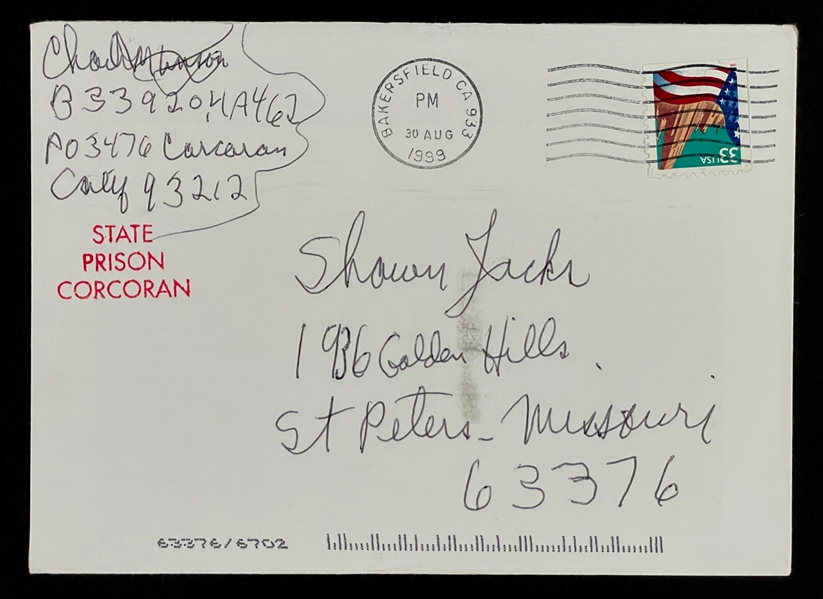 Charles Manson
B33920 4A462
PO 3476 Corcoran
Calif 93212
STATE
PRISON
CORCORAN
BAKERSFIELD CA 933
PM
30 AUG
1999
33 USA
Shawn Jacks
1936 Golden Hills
St Peters - Missouri
63376
63376/6702